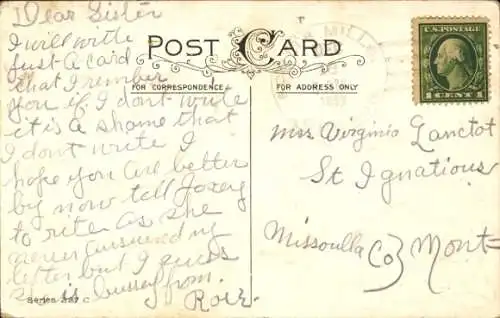 Dear Sister
I will write
just a card
that I rember
you if I dont write
it is a shame that
I dont write I
hope you are better
by now tell
to rite as she
never answered my
letter but I guess
she is bussey from
Rose.
Series 337 C
POST CARD
FOR CORRESPONDENCE
FOR ADDRESS ONLY
U.S. POSTAGE
1 CENT 1
Miss Virginia Lanctot
St Ignatious
Missoulla Co Mont